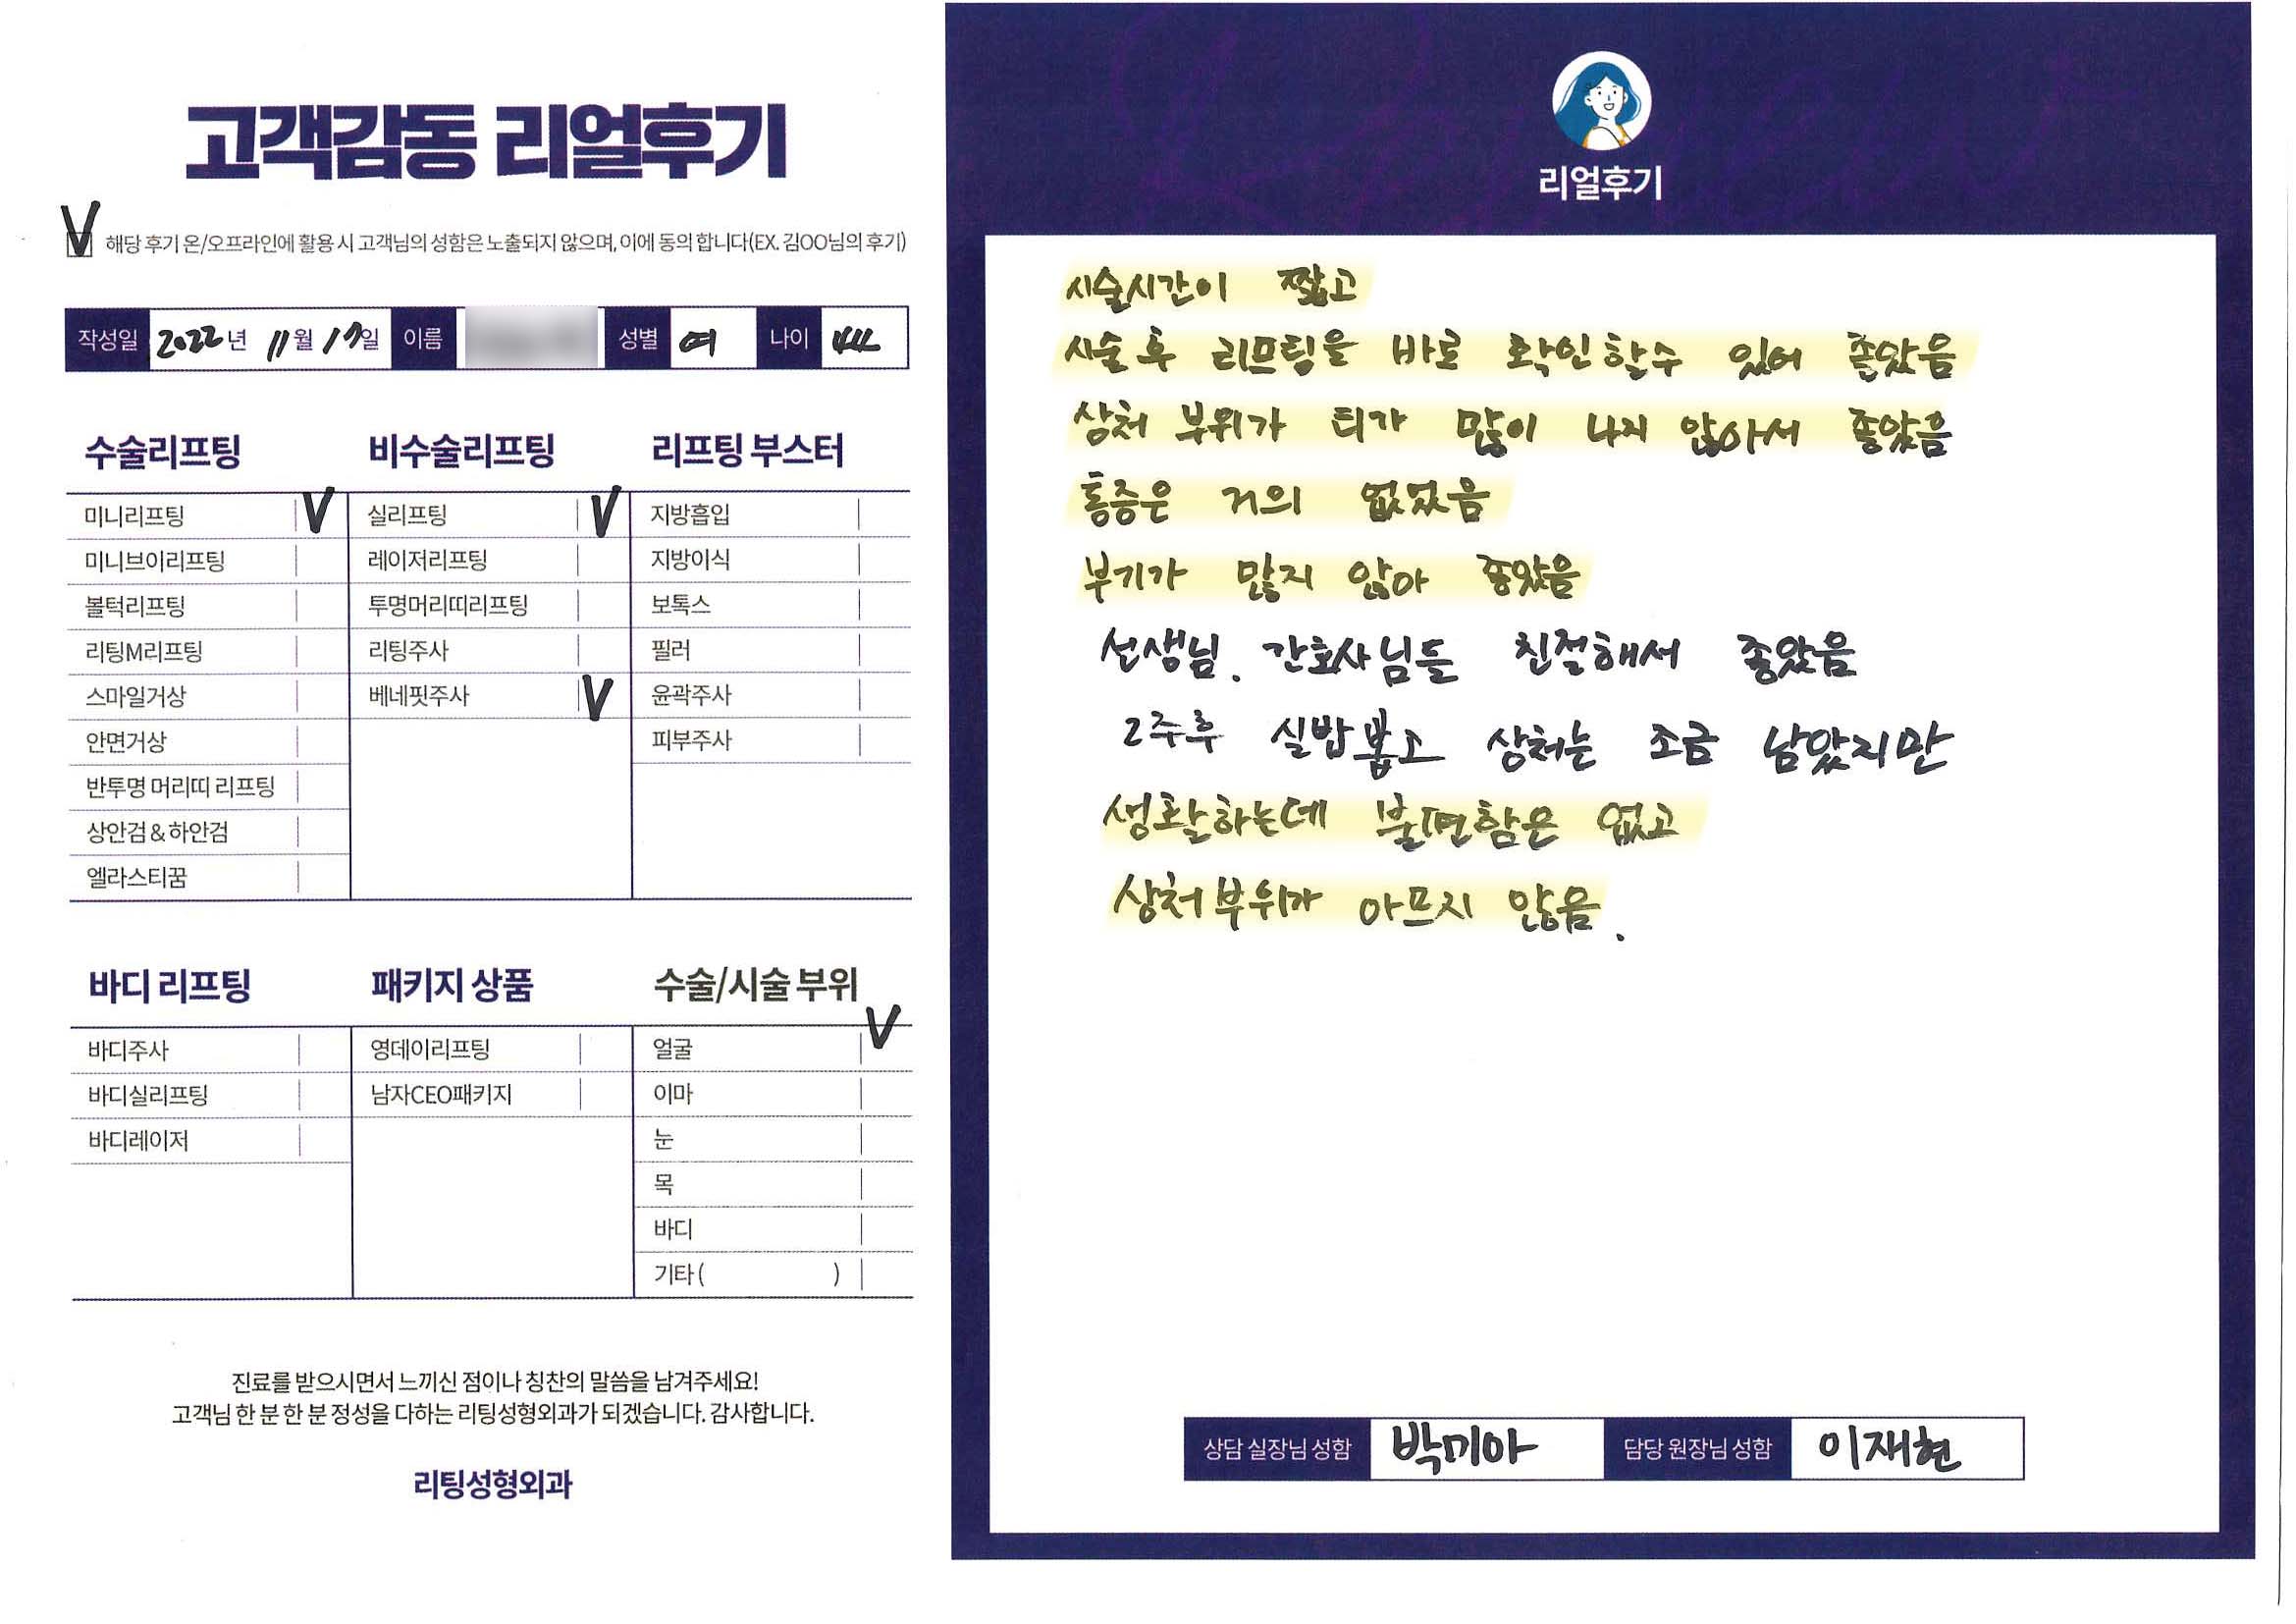 고객감동 리얼후기
V 해당 후기 온/오프라인에 활용 시 고객님의 성함은 노출되지 않으며, 이에 동의 합니다(EX. 김OO님의 후기)
작성일 2022년 11월 17일 이름 성별 여 나이 44
수술리프팅
미니리프팅 V
미니브이리프팅
볼턱리프팅
리팅M리프팅
스마일거상
안면거상
반투명 머리띠 리프팅
상안검&하안검
엘라스티꿈
비수술리프팅
실리프팅 V
레이저리프팅
투명머리띠리프팅
리팅주사
베네핏주사 V
리프팅 부스터
지방흡입
지방이식
보톡스
필러
윤곽주사
피부주사
바디 리프팅
바디주사
바디실리프팅
바디레이저
패키지 상품
영데이리프팅
남자CEO패키지
수술/시술 부위
얼굴 V
이마
눈
목
바디
기타 ( )
진료를 받으시면서 느끼신 점이나 칭찬의 말씀을 남겨주세요!
고객님 한 분 한 분 정성을 다하는 리팅성형외과가 되겠습니다. 감사합니다.
리팅성형외과
리얼후기
시술시간이 짧고
시술 후 리프팅을 바로 확인할수 있어 좋았음
상처 부위가 티가 많이 나지 않아서 좋았음
통증은 거의 없었음
부기가 많지 않아 좋았음
선생님. 간호사님들 친절해서 좋았음
2주후 실밥 뽑고 상처는 조금 남았지만
생활하는데 불편함은 없고
상처부위가 아프지 않음.
상담 실장님 성함 박미아 담당 원장님 성함 이재현